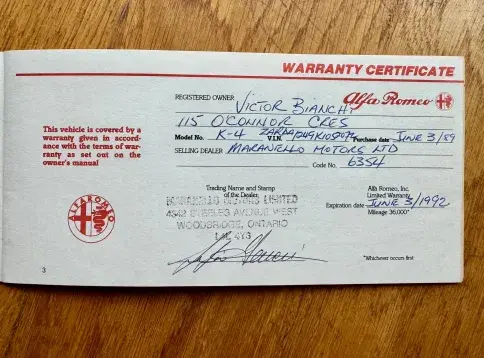 WARRANTY CERTIFICATE
REGISTERED OWNER VICTOR BIANCHI Alfa Romeo
115 O'CONNOR CRES
Model No. K-4 V.I.N. Purchase date JUNE 3/89
SELLING DEALER MARANELLO MOTORS LTD
Code No. 6354
This vehicle is covered by a
warranty given in accord-
ance with the terms of war-
ranty as set out on the
owner's manual
ALFA ROMEO
Trading Name and Stamp
of the Dealer
MARANELLO MOTORS LIMITED
4942 STEELES AVENUE WEST
WOODBRIDGE, ONTARIO
Alfa Romeo, Inc.
Limited Warranty
Expiration date JUNE 3/1992
Mileage 36,000*
*Whichever occurs first
3